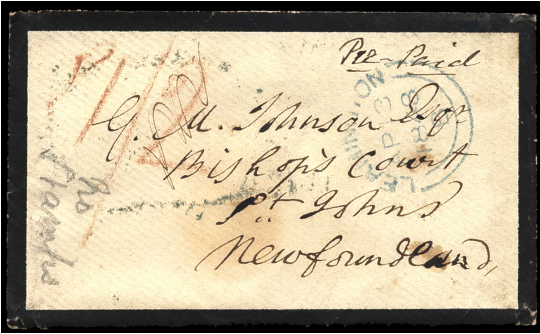 Pre-Paid
1/2
G. M. Johnson Esqr
Bishop's Court
St. Johns
Newfoundland,
LEAMINGTON
No
Stamps